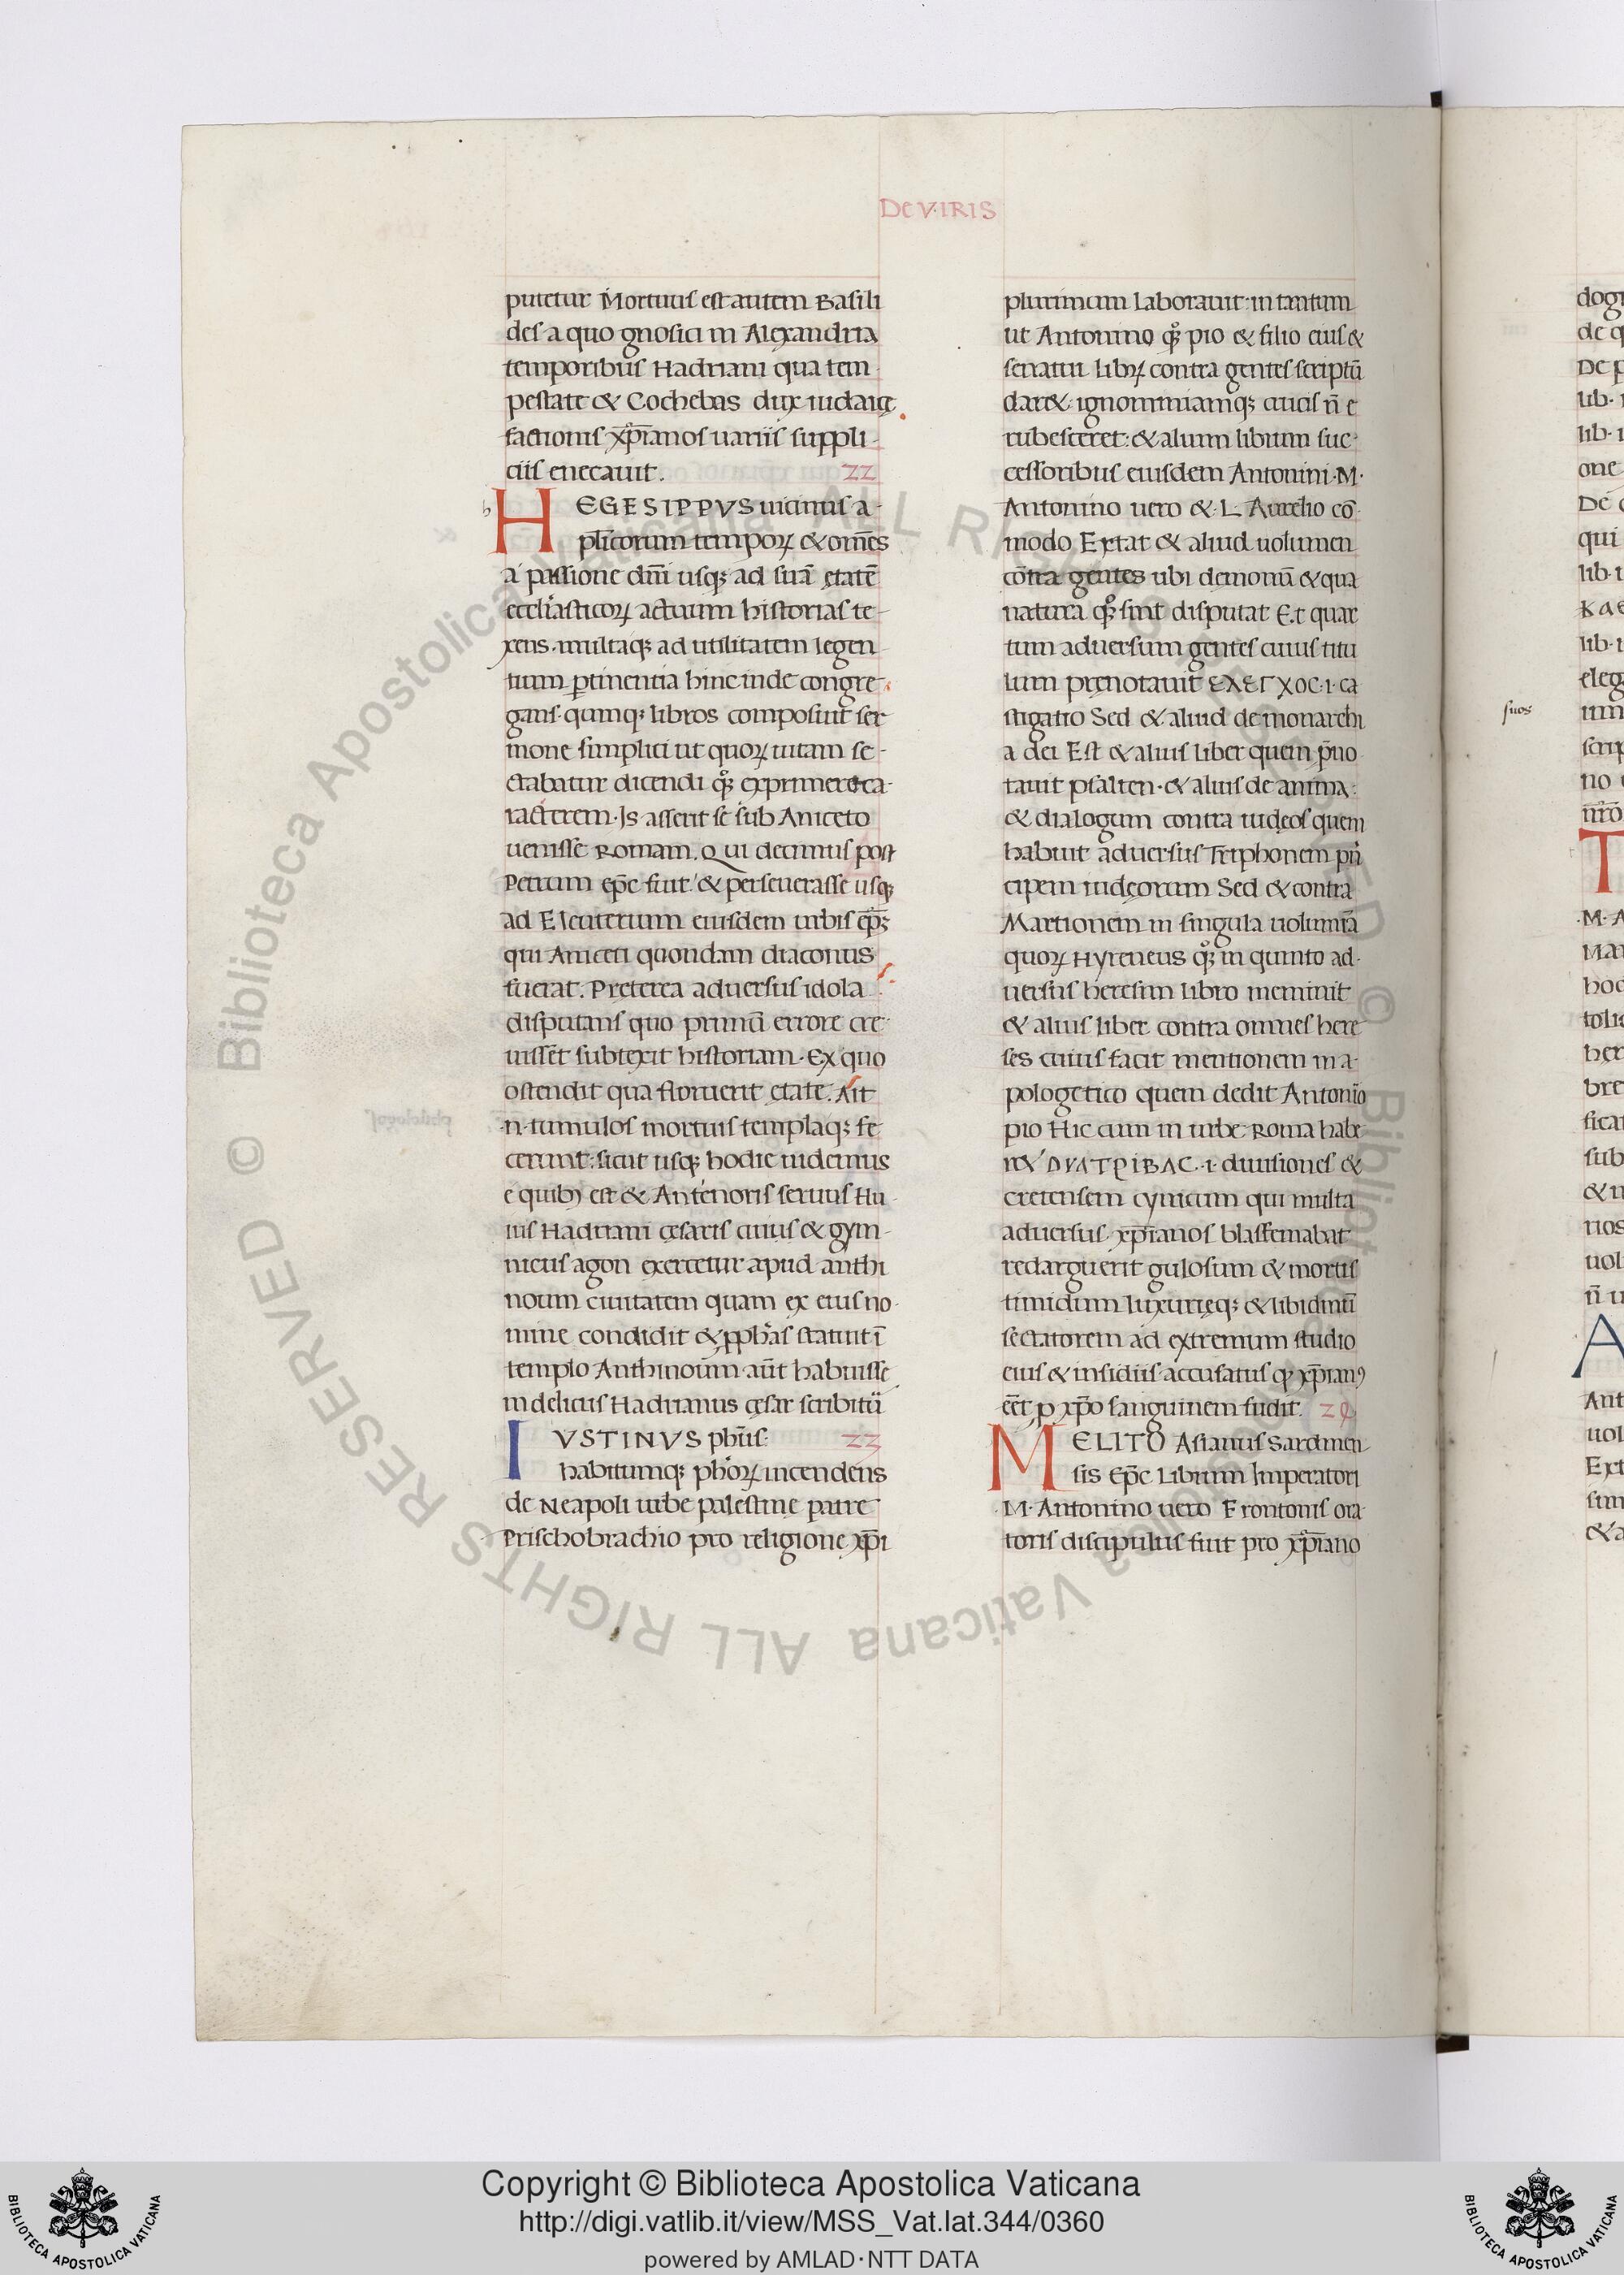 DE VIRIS
putetur Mortuus est autem Basili
des a quo gnosici in Alexandria
temporibus Hadriani qua tem
pestate & Cochebas dux iudaicę
factionis xp̄ianos uariis suppli-
ciis enecauit. 22
HEGESIPPVS uicinus a-
pl̄icorum tempoꝝ & om̄es
a passione dn̄i usqꝫ ad suā ętatē
eccl̄iasticoꝝ actuum historias te-
xens. multaqꝫ ad utilitatem legen
tium ꝑtinentia hinc inde congre
gans. quinqꝫ libros composuit ser
mone simplici ut quoꝝ uitam se-
ctabatur dicendi qꝫ exprimeret ca-
racterem. Is asserit se sub Aniceto
uenisse Romam. Qui decimus post
Petrum ep̄c fuit. & perseuerasse usqꝫ
ad Eleuterium eiusdem urbis ep̄ꝫ
qui Aniceti quondam diaconus
fuerat. Pręterea aduersus idola
disputans quo primū errore cre
uissēt subtexit historiam. Ex quo
ostendit qua floruerit ętate. Ait
.n. tumulos mortuis templaqꝫ fe
cerunt: sicut usqꝫ hodie uidemus
e quibꝫ est & Antenoris seruus Hu
ius Hadriani cęsaris cuius & gym-
nicus agon exercetur apud anthi
noum ciuitatem quam ex eius no
mine condidit & ꝓph̄as statuit ī
templo Anthinoum aūt habuisse
in deliciis Hadrianus cęsar scribitū
IVSTINVS ph̄us: 23
habitumqꝫ ph̄oꝝ incendens
de Neapoli urbe palestinę patre
Prischobrachio pro religione xp̄i
plurimum laborauit: in tantum
ut Antonino qꝫ pio & filio eius &
senatui libꝝ contra gentes scriptū
daret: ignominiamqꝫ crucis n̄ e
rubesceret: & alium librum suc-
cessoribus eiusdem Antonini. M.
Antonino uero & L. Aurelio cō
modo Extat & aliud uolumen
cōtra gentes ubi demonū & qua
natura qꝫ sint disputat Et quar
tum aduersum gentes cuius titu
lum pręnotauit ΕΛΕΓΧΟC. i. ca
stigatio Sed & aliud de monarchi
a dei Est & alius liber quem p̄no
tauit psalten. & alius de anima:
& dialogum contra iudęos quem
habuit aduersus Triphonem prī
cipem iudęorum Sed & contra
Martionem in singula uolumīa
quoꝝ Hyreneus qꝫ in quinto ad-
uersus heresim libro meminit
& alius liber contra omnes here
ses cuius facit mentionem in a-
pologetico quem dedit Antonīo
pio Hic cum in urbe Roma habe
ret ΔΥΑΤΡΙΒΑC. i. diuisiones &
cretensem cynicum qui multa
aduersus xp̄ianos blasfemabat
redarguerit gulosum & mortis
timidum luxurięqꝫ & libidinū
sectatorem ad extremum studio
eius & insidiis accusatus ꝙ xp̄ianꝰ
eēt ꝓ xp̄o sanguinem fudit. 24
MELITO Asianus Sardinen-
sis Ep̄c Librum Imperatori
M. Antonino uero Frontonis ora
toris discipulus fuit pro xp̄iano
suos
Copyright © Biblioteca Apostolica Vaticana
http://digi.vatlib.it/view/MSS_Vat.lat.344/0360
powered by AMLAD·NTT DATA